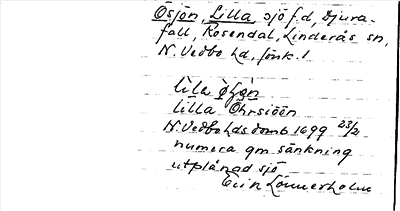 Ösjön, Lilla sjö f.d., Djura-
fall, Rosendal, Linderås sn,
N. Vedbo hd, Jönk. l.
lila ø̀ʃǝ̀n
Lilla Öhrsiöön
N. Vedbo hds domb 1699 23/2
numera gm sänkning
utplånad sjö
Erin Lönnerholm